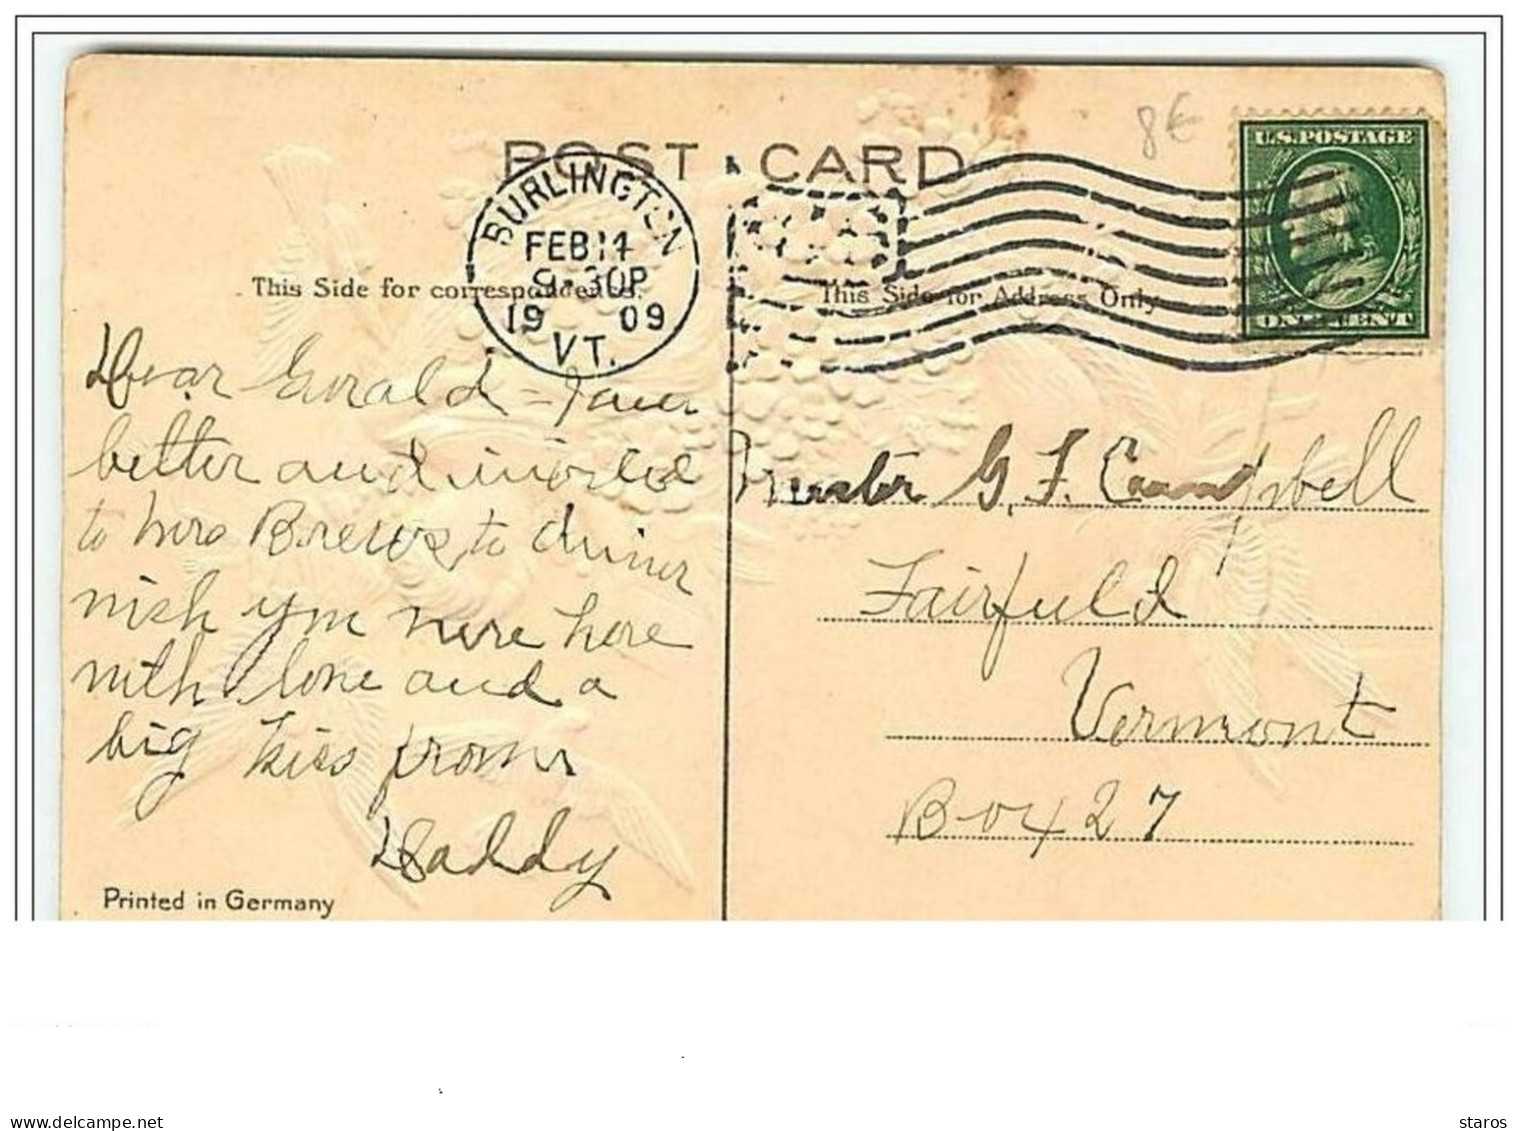 8€
U.S. POSTAGE
ONE CENT
POST CARD
BURLINGTON
FEB 14
9-30P
1909
VT.
This Side for correspondence.
This Side for Address Only
Dear Gerald =
better and invited
to Mrs Brews to dinner
wish you were here
with love and a
big kiss from
Daddy
Printed in Germany
Master G. F. Campbell
Fairfield
Vermont
Box 27
delcampe.net
staros